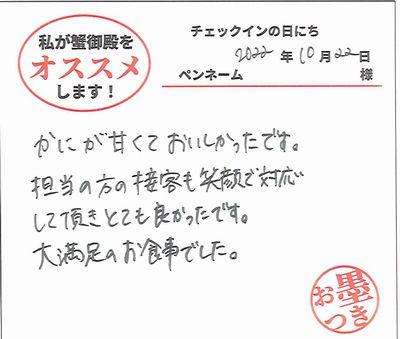 私が蟹御殿を
オススメ
します！
チェックインの日にち
2022 年 10 月 22 日
ペンネーム 様
かにが甘くておいしかったです。
担当の方の接客も笑顔で対応
して頂きとても良かったです。
大満足のお食事でした。
お墨
つき